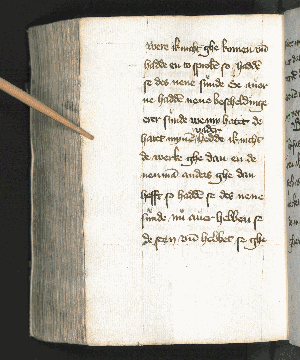 were ik nicht ghe komen vn̄
hadde en to sproke so hedde
se des nene sūnde Se auer
ne hadde nene bescheldinge
erer sūnde wenn hatet de
vader
hatet mynē hedde ik nicht
de werke ghe dan en de
nen mā anders ghe dan
hefft so hadde se des nene
sūnde nu auer hebben se
se seen vn̄ hebbet se ghe